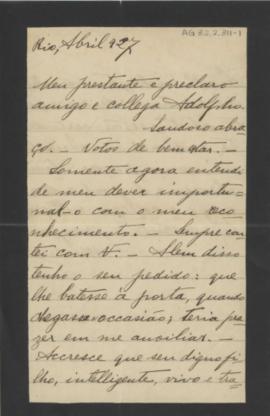 AG 33.2.311-1
Rio, Abril 927
Meu prestante e preclaro
amigo e collega Adolpho.
Saudoso abra-
ço. - Votos de bem estar. -
Somente agora entendi
de meu dever importu-
nal-o com o meu reco-
nhecimento. - Sempre con-
tei com V. - Alem disso
tenho o seu pedido: que
lhe batesse á porta, quando
chegasse occasião; teria pra-
zer em me auxiliar. -
Accresce que seu digno fi-
lho, intelligente, vivo e tra-